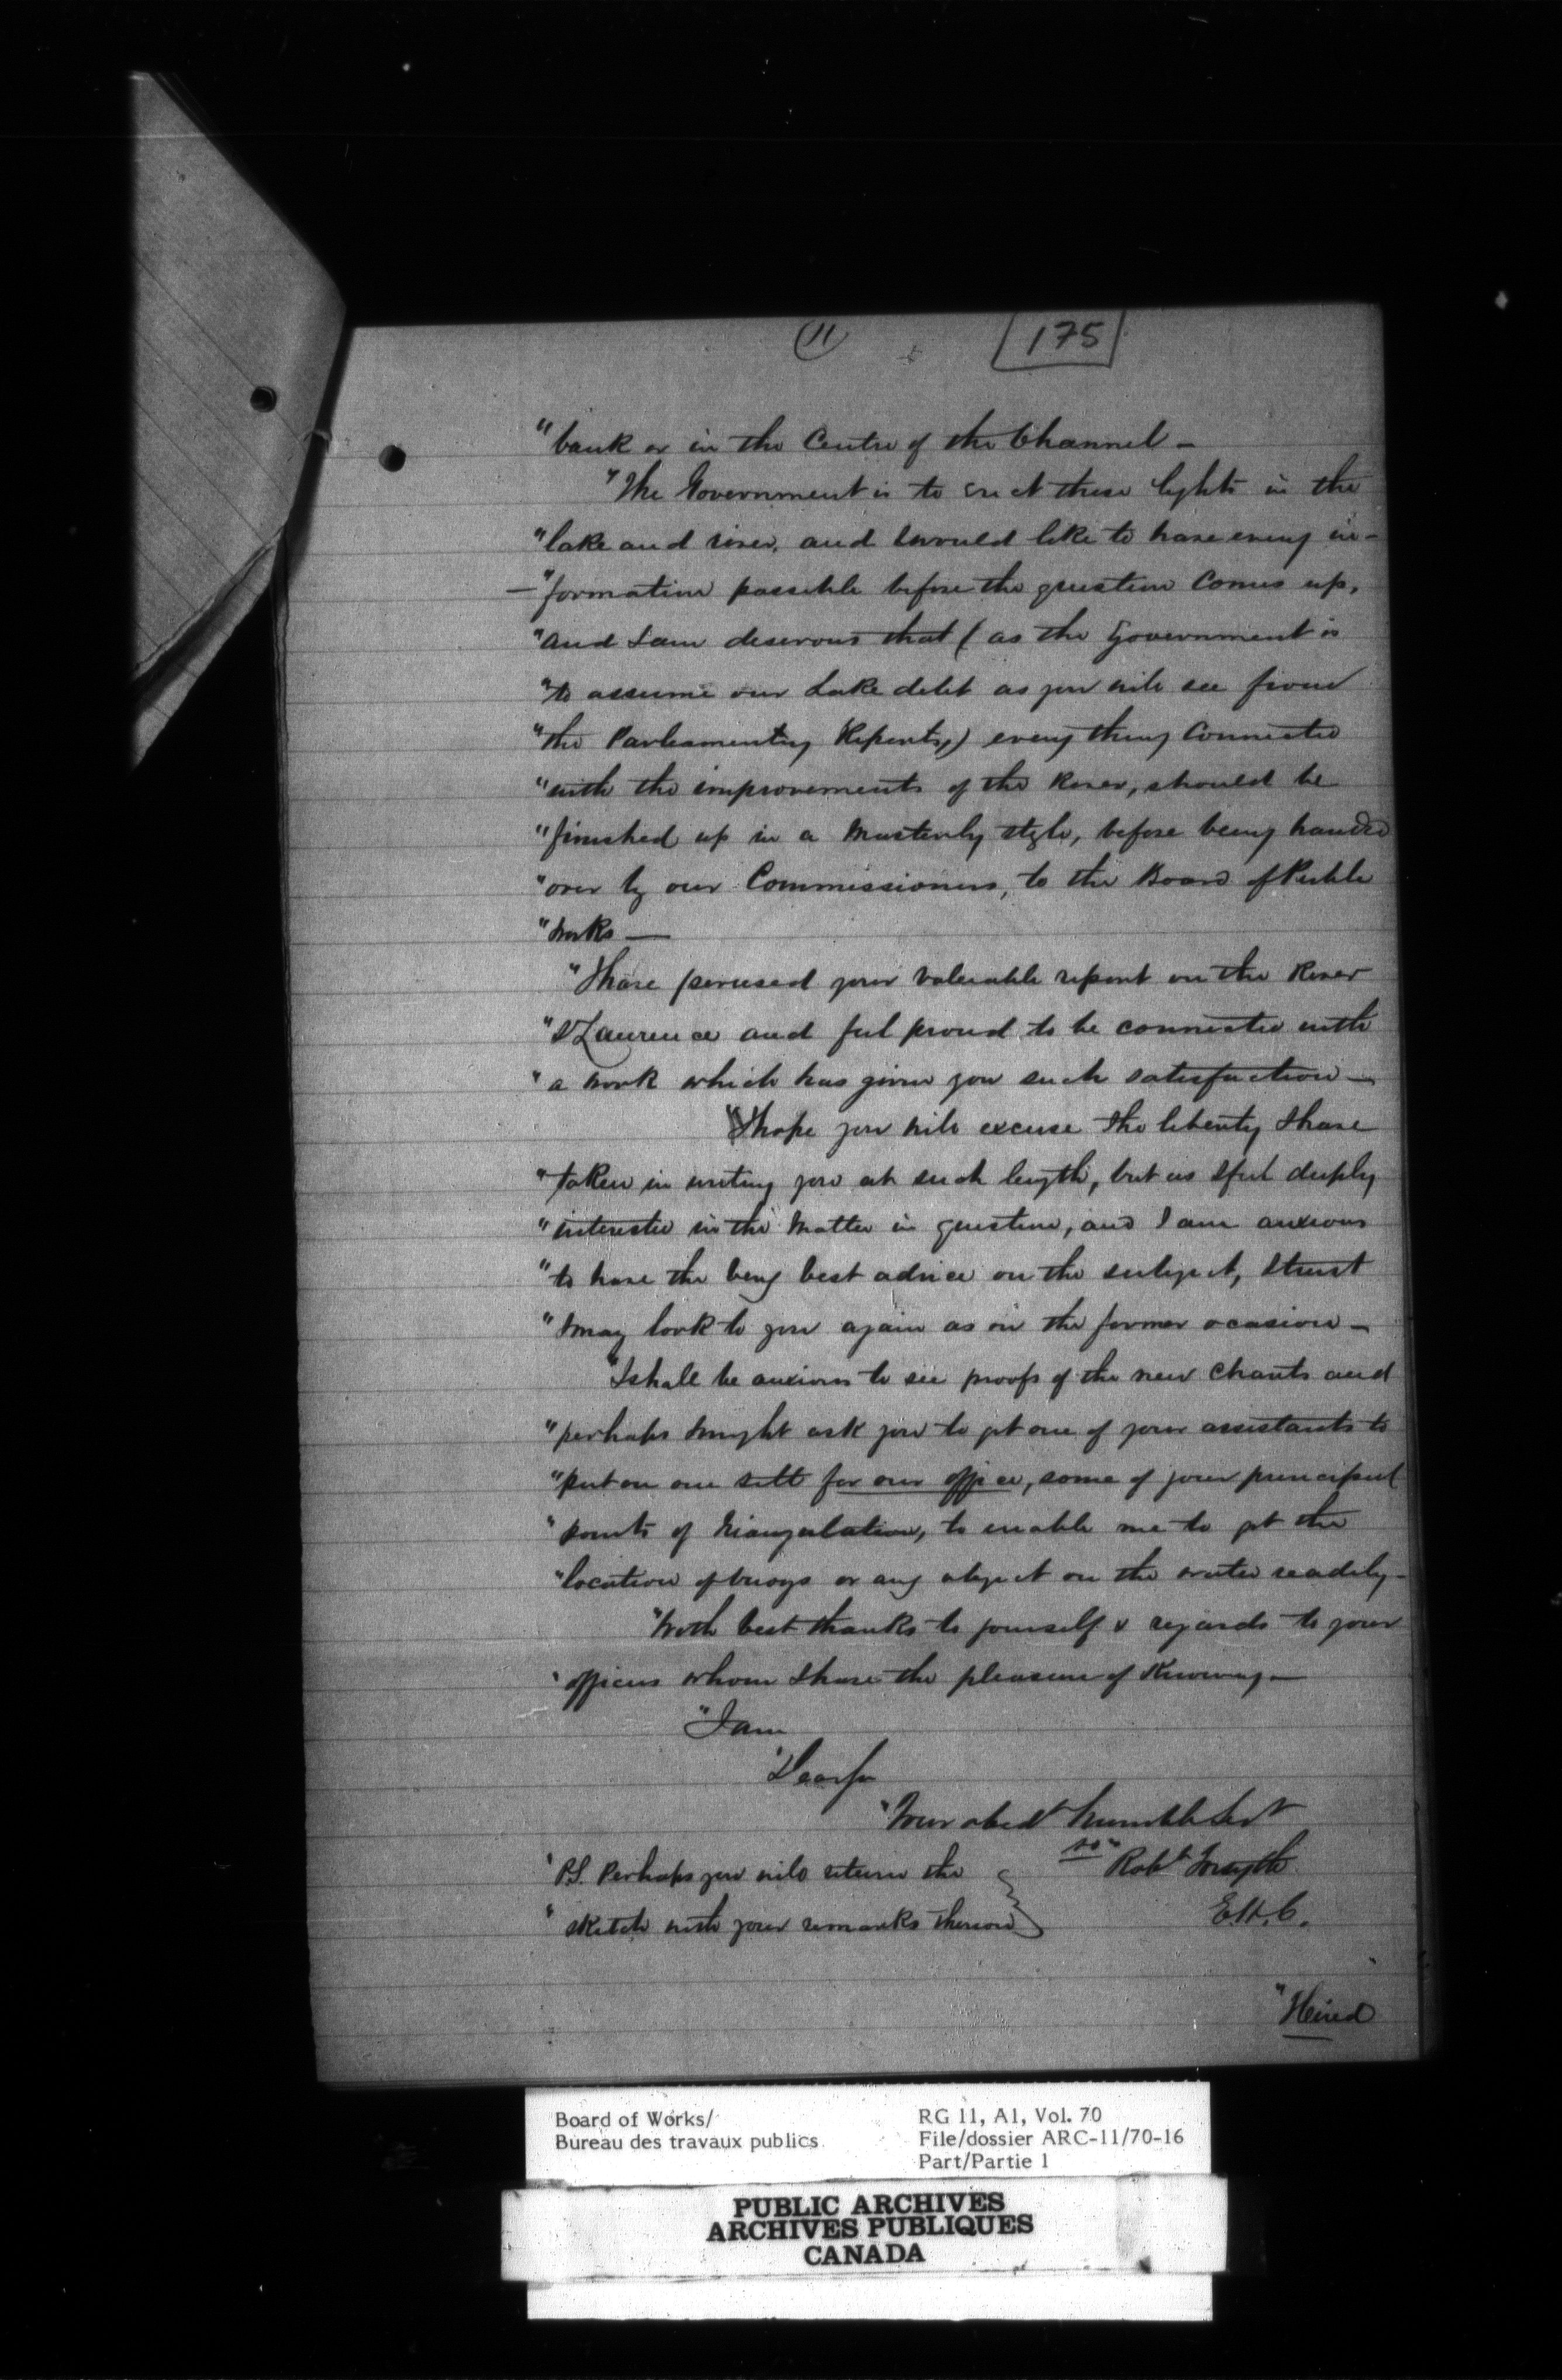 11
175
"bank or in the Centre of the Channel –
"The Government is to erect these lights in the
"lake and river, and I would like to have every in-
-"formation possible before the question Comes up,
"and I am deserous that (as the Government is
"to assume our Lake debt as you will see from
"the Parliamentry Reports,) every thing Connected
"with the improvements of the River, should be
"finished up in a Masterly style, before being handed
"over by our Commissioners, to the Board of Public
"Works —
"I have perused your valuable report on the River
"St Laurence and feel proud to be connected with
"a work which has given you such satisfaction –
"I hope you will excuse the liberty I have
"taken in writing you at such length, but as I feel deeply
"interested in the Matter in question, and I am anxious
"to have the very best advice on the subject, I trust
"I may look to you again as on the former ocasion –
"I shall be anxious to see proofs of the new Charts and
"perhaps I might ask you to get one of your assistants to
"put on one sett for our office, some of your principal
"points of triangulation, to enable me to get the
"location of buoys or any object on the water readily –
"With best thanks to yourself & regards to your
"officers whom I have the pleasure of Knowing –
"I am
"Dear Sir
"Your obedt humble Servt
"Robt Forsyth
E.H.C.
"P.S. Perhaps you will return the
" sketch with your remarks thereon
Board of Works/
Bureau des travaux publics
RG 11, A1, Vol. 70
File/dossier ARC-11/70-16
Part/Partie 1
PUBLIC ARCHIVES
ARCHIVES PUBLIQUES
CANADA